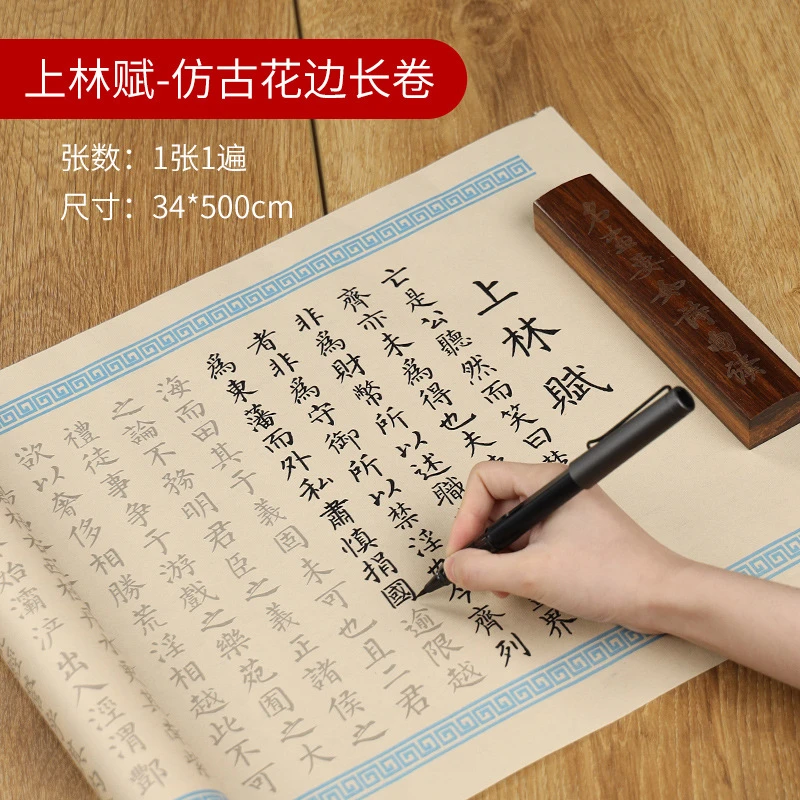 上林赋-仿古花边长卷
张数：1张1遍
尺寸：34*500cm
上林賦
亡是公聽然而笑曰
齊亦未為得也夫
非為財幣所以述職 界
者非為守御所以禁淫也今齊列
為東藩而外私肅慎捐國逾限越
海而田其于義固未可也且二君
之論不務明君臣之義正諸侯之
禮徒事争于游戲之樂苑囿之大
欲以奢侈相勝荒淫相越此不可
始灞浐出入涇渭酆